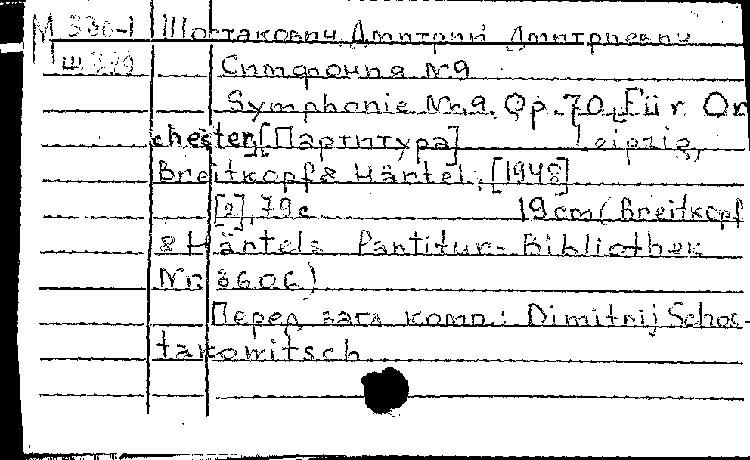 М 336-1 Шостакович, Дмитрий Дмитриевич
Ш 799 Симфония №9
Symphonie Nr.9. Op. 70. Für Or
chester, [Партитура] Leipzig,
Breitkopf & Härtel, [1948]
[2], 79 с 19 cm (Breitkopf
& Härtels Partitur-Bibliothek
Nr 3606)
Перед загл комп.: Dimitrij Schos-
takowitsch